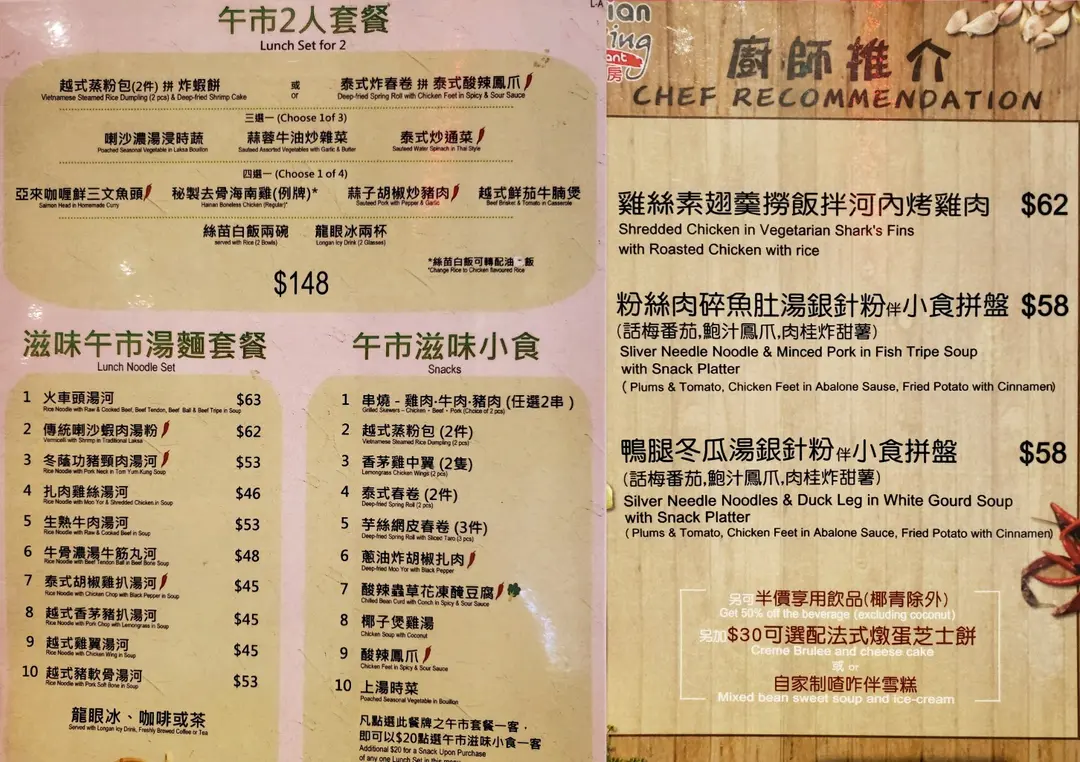 午市2人套餐
Lunch Set for 2
越式蒸粉包(2件) 拼 炸蝦餅 或 泰式炸春卷 拼 泰式酸辣鳳爪
Vietnamese Steamed Rice Dumpling (2 pcs) & Deep-fried Shrimp Cake or Deep-fried Spring Roll with Chicken Feet in Spicy & Sour Sauce
三選一 (Choose 1of 3)
喇沙濃湯浸時蔬 蒜蓉牛油炒雜菜 泰式炒通菜
Poached Seasonal Vegetable in Laksa Bouillon Sauteed Assorted Vegetables with Garlic & Butter Sauteed Water Spinach in Thai Style
四選一 (Choose 1 of 4)
亞來咖喱鮮三文魚頭 秘製去骨海南雞(例牌)* 蒜子胡椒炒豬肉 越式鮮茄牛腩煲
Salmon Head in Homemade Curry Hainan Boneless Chicken (Regular)* Sauteed Pork with Pepper & Garlic Beef Brisket & Tomato in Casserole
絲苗白飯兩碗 龍眼冰兩杯
served with Rice (2 Bowls) Longan Icy Drink (2 Glasses)
*絲苗白飯可轉配油飯
*Change Rice to Chicken flavoured Rice
$148
滋味午市湯麵套餐
Lunch Noodle Set
1 火車頭湯河 $63
Rice Noodle with Raw & Cooked Beef, Beef Tendon, Beef Ball & Beef Tripe in Soup
2 傳統喇沙蝦肉湯粉 $62
Vermicelli with Shrimp in Traditional Laksa
3 冬蔭功豬頸肉湯河 $53
Rice Noodle with Pork Neck in Tom Yum Kung Soup
4 扎肉雞絲湯河 $46
Rice Noodle with Moo Yor & Shredded Chicken in Soup
5 生熟牛肉湯河 $53
Rice Noodle with Raw & Cooked Beef in Soup
6 牛骨濃湯牛筋丸河 $48
Rice Noodle with Beef Tendon Ball in Beef Bone Soup
7 泰式胡椒雞扒湯河 $45
Rice Noodle with Chicken Chop with Black Pepper in Soup
8 越式香茅豬扒湯河 $45
Rice Noodle with Pork Chop with Lemongrass in Soup
9 越式雞翼湯河 $45
Rice Noodle with Chicken Wing in Soup
10 越式豬軟骨湯河 $53
Rice Noodle with Pork Soft Bone in Soup
龍眼冰、咖啡或茶
Served with Longan Icy Drink, Freshly Brewed Coffee or Tea
午市滋味小食
Snacks
1 串燒 - 雞肉·牛肉·豬肉 (任選2串)
Grilled Skewers – Chicken • Beef • Pork (Choice of 2 pcs)
2 越式蒸粉包 (2件)
Vietnamese Steamed Rice Dumpling (2 pcs)
3 香茅雞中翼 (2隻)
Lemongrass Chicken Wings (2 pcs)
4 泰式春卷 (2件)
Deep-fried Spring Roll (2 pcs)
5 芋絲網皮春卷 (3件)
Deep-fried Spring Roll with Sliced Taro (3 pcs)
6 蔥油炸胡椒扎肉
Deep-fried Moo Yor with Black Pepper
7 酸辣蟲草花凍醃豆腐
Chilled Bean Curd with Conch in Spicy & Sour Sauce
8 椰子煲雞湯
Chicken Soup with Coconut
9 酸辣鳳爪
Chicken Feet in Spicy & Sour Sauce
10 上湯時菜
Poached Seasonal Vegetable in Bouillon
凡點選此餐牌之午市套餐一客，
即可以$20點選午市滋味小食一客
Additional $20 for a Snack Upon Purchase
of any one Lunch Set in this menu
廚師推介
CHEF RECOMMENDATION
雞絲素翅羹撈飯拌河內烤雞肉 $62
Shredded Chicken in Vegetarian Shark's Fins
with Roasted Chicken with rice
粉絲肉碎魚肚湯銀針粉伴小食拼盤 $58
(話梅番茄,鮑汁鳳爪,肉桂炸甜薯)
Sliver Needle Noodle & Minced Pork in Fish Tripe Soup
with Snack Platter
(Plums & Tomato, Chicken Feet in Abalone Sause, Fried Potato with Cinnamen)
鴨腿冬瓜湯銀針粉伴小食拼盤 $58
(話梅番茄,鮑汁鳳爪,肉桂炸甜薯)
Silver Needle Noodles & Duck Leg in White Gourd Soup
with Snack Platter
(Plums & Tomato, Chicken Feet in Abalone Sauce, Fried Potato with Cinnamen)
另可半價享用飲品(椰青除外)
Get 50% off the beverage (excluding coconut)
另加$30可選配法式燉蛋芝士餅
Creme Brulee and cheese cake
或 or
自家制喳咋伴雪糕
Mixed bean sweet soup and ice-cream